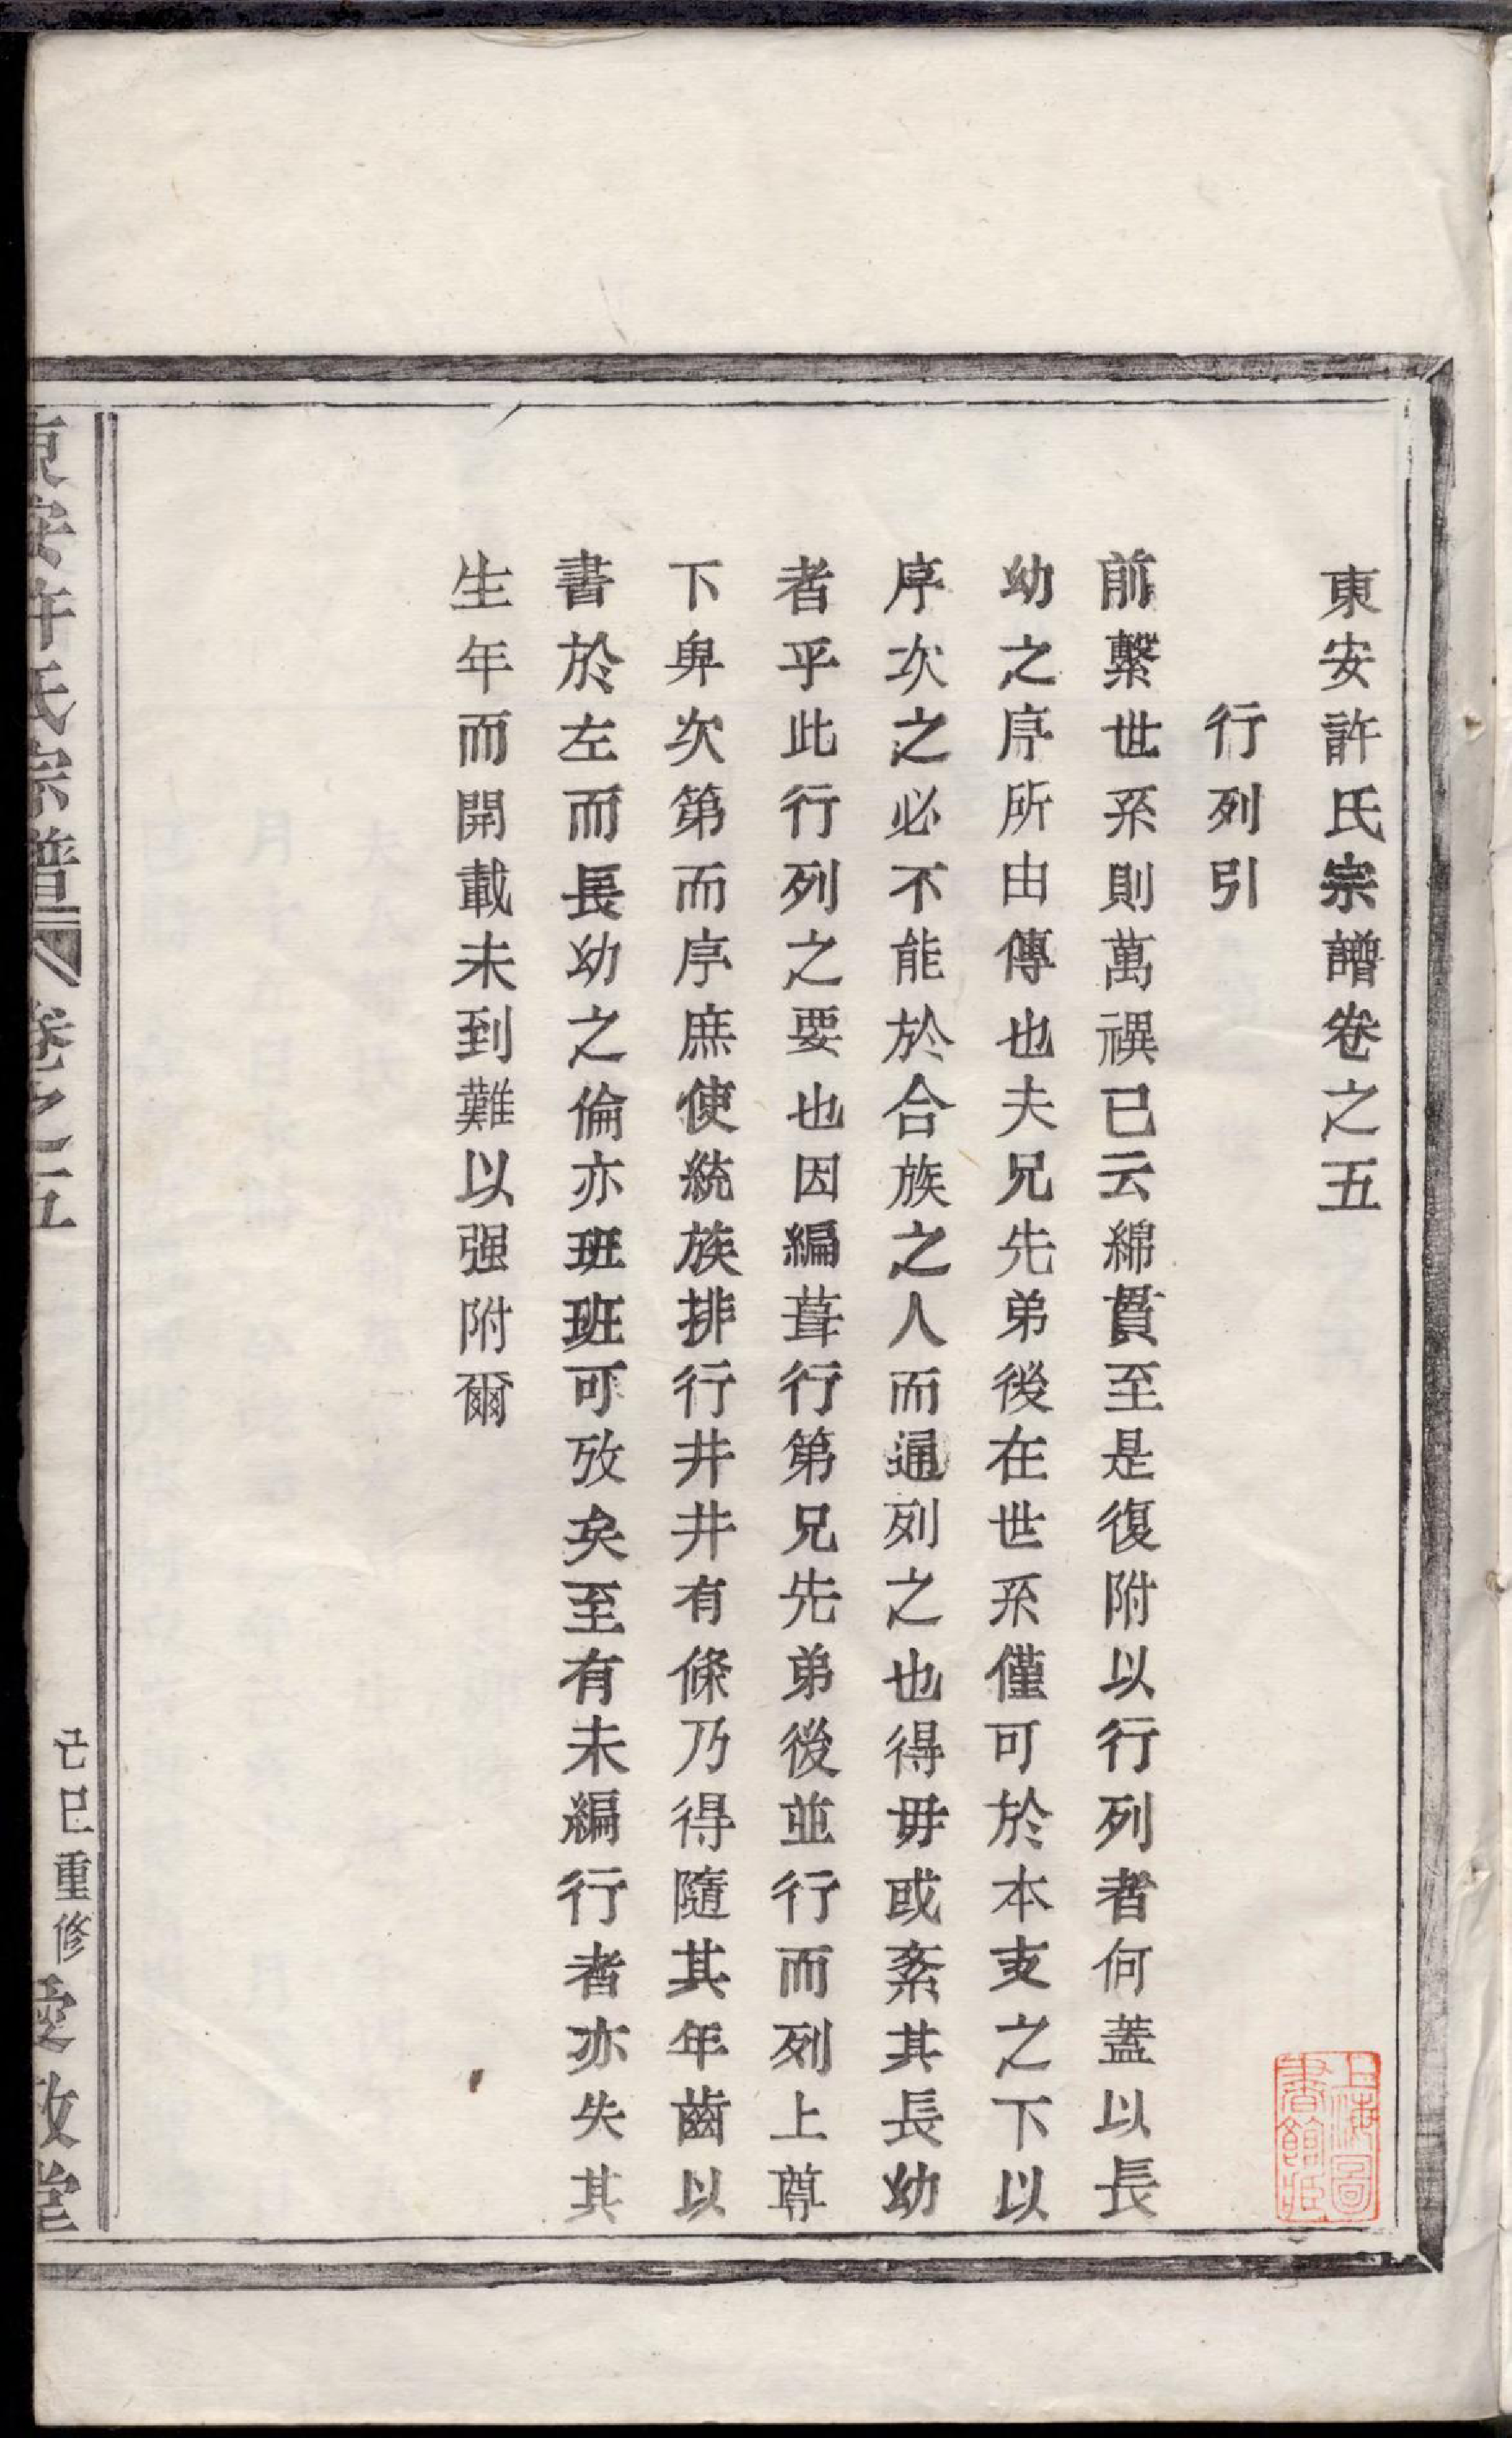 東安許氏宗譜卷之五
行列引
前繫世系則萬禩已云綿貫至是復附以行列者何蓋以長
幼之序所由傳也夫兄先弟後在世系僅可於本支之下以
序次之必不能於合族之人而通列之也得毋或紊其長幼
者乎此行列之要也因編葺行第兄先弟後並行而列上尊
下卑次第而序庶使統族排行井井有條乃得隨其年齒以
書於左而長幼之倫亦班班可攷矣至有未編行者亦失其
生年而開載未到難以强附爾
東安許氏宗譜 卷之五 己巳重修 愛敬堂
上海圖書館藏